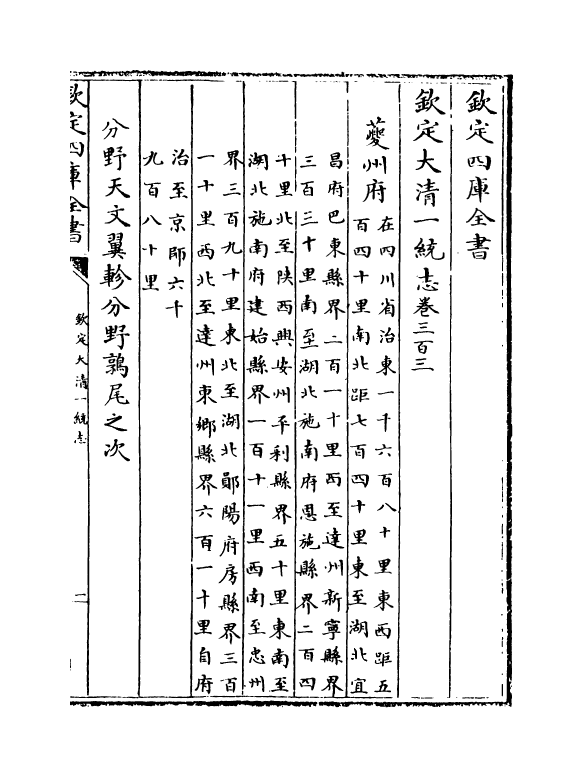 欽定四庫全書
欽定大清一統志卷三百三
夔州府
在四川省治東一千六百八十里東西距五
百四十里南北距七百四十里東至湖北宜
昌府巴東縣界二百一十里西至達州新寧縣界
三百三十里南至湖北施南府恩施縣界二百四
十里北至陜西興安州平利縣界五十里東南至
湖北施南府建始縣界一百十一里西南至忠州
界三百九十里東北至湖北鄖陽府房縣界三百
一十里西北至達州東鄉縣界六百一十里自府
治至京師六十
九百八十里
分野天文翼軫分野鶉尾之次
欽定四庫全書
欽定大清一統志
二